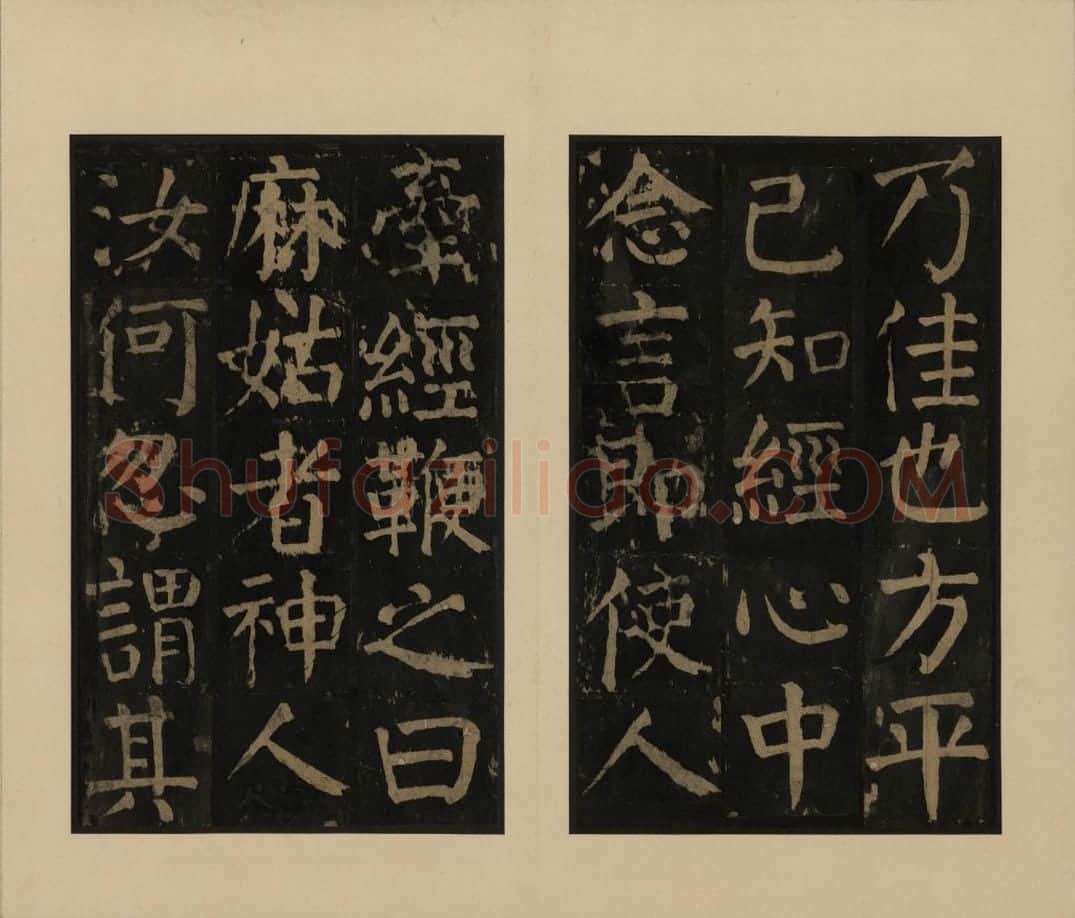 乃佳也方平
已知經心中
念言即使人
牽經鞭之曰
麻姑者神人
汝何忽謂其
Shufaziliao.COM